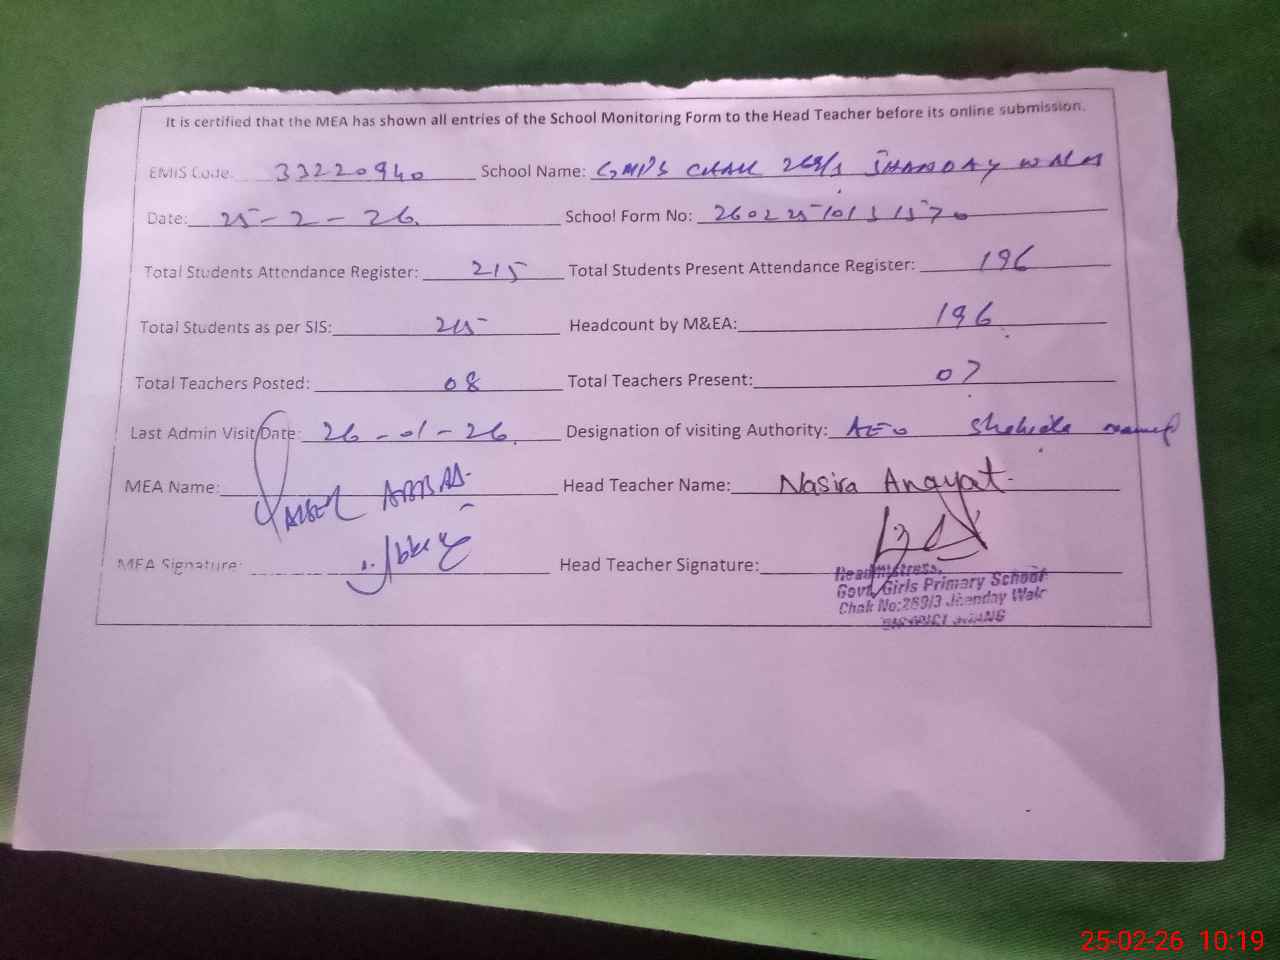 It is certified that the MEA has shown all entries of the School Monitoring Form to the Head Teacher before its online submission.
EMIS Code: 33220940 School Name: GMPS CHAK 269/3 JHANDAY WALA
Date: 25-2-26 School Form No:
Total Students Attendance Register: 215 Total Students Present Attendance Register: 196
Total Students as per SIS: 215 Headcount by M&EA: 196
Total Teachers Posted: 08 Total Teachers Present: 07
Last Admin Visit Date: 26-01-26 Designation of visiting Authority: AEO Shahida
MEA Name: ABBAS Head Teacher Name: Nasira Anayat
MEA Signature: Head Teacher Signature:
Headmistress,
Govt. Girls Primary School
Chak No:269/3 Jhanday Wala
DISTRICT JHANG
25-02-26 10:19